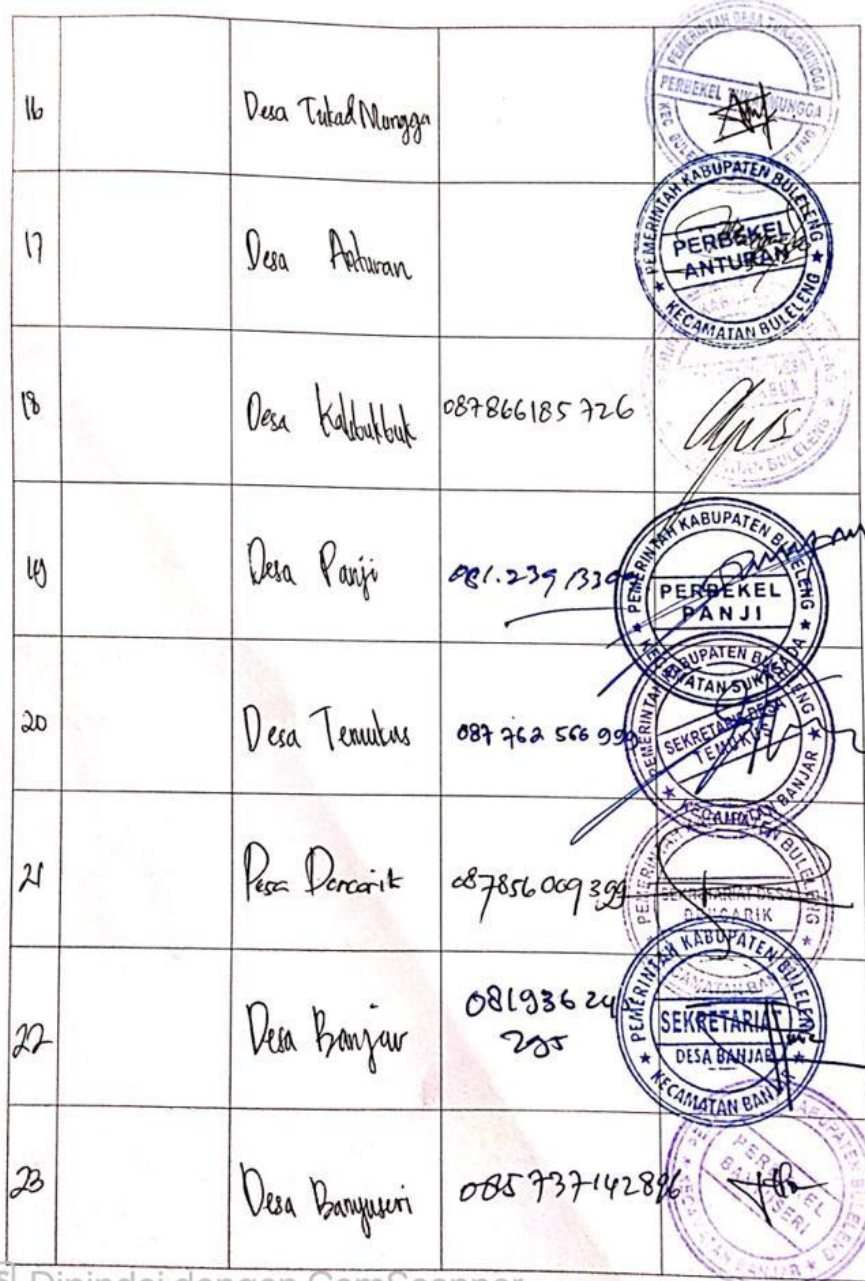 16
Desa Tukad Mungga
PEMERINTAH DESA TUKADMUNGGA
PERBEKEL TUKADMUNGGA
17
Desa Anturan
PEMERINTAH KABUPATEN BULELENG
PERBEKEL
ANTURAN
KECAMATAN BULELENG
18
Desa Kalibukbuk
087866185726
19
Desa Panji
PEMERINTAH KABUPATEN BULELENG
PERBEKEL
PANJI
KECAMATAN SUKASADA
20
Desa Temukus
087 762 566 999
SEKRETARIS DESA
TEMUKUS
KECAMATAN BANJAR
21
Desa Dencarik
087856009399
SEKRETARIAT DESA
DENCARIK
22
Desa Banjar
PEMERINTAH KABUPATEN BULELENG
SEKRETARIAT
DESA BANJAR
KECAMATAN BANJAR
23
Desa Banyuseri
085737142896
PERBEKEL
BANYUSERI
Dipindai dengan CamScanner